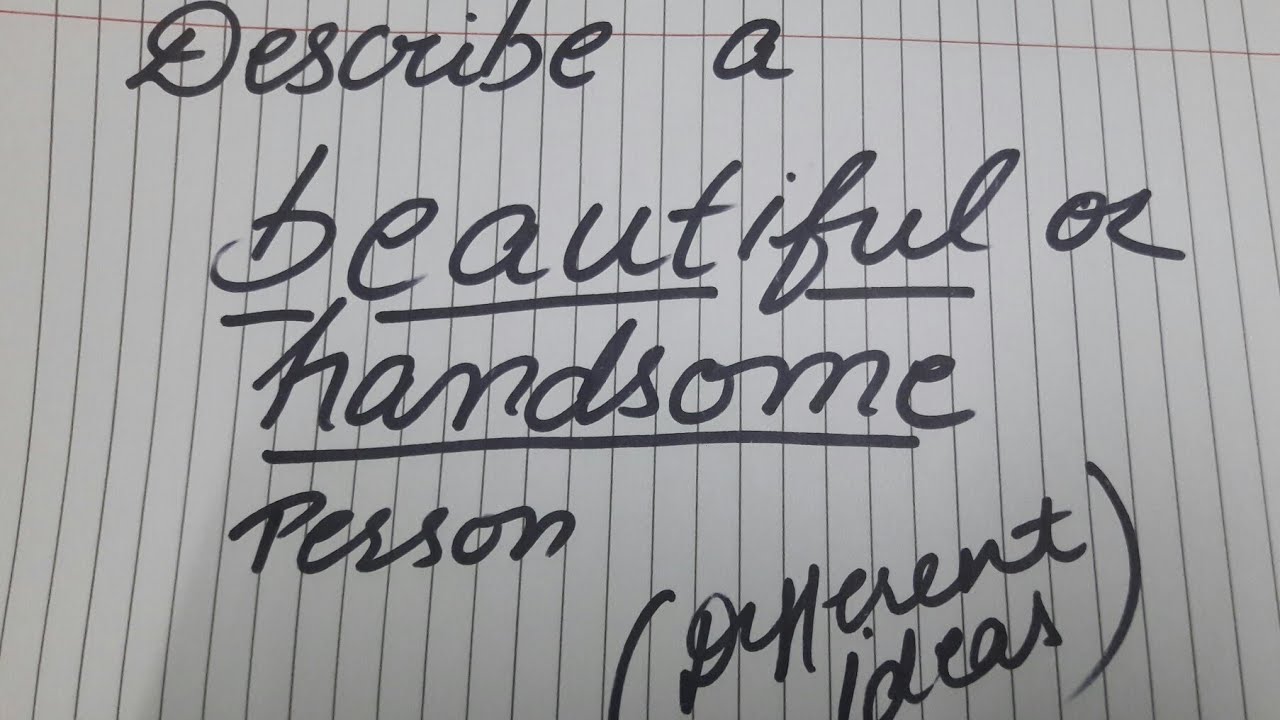 Describe a
beautiful or
handsome
Person
(Different
ideas)